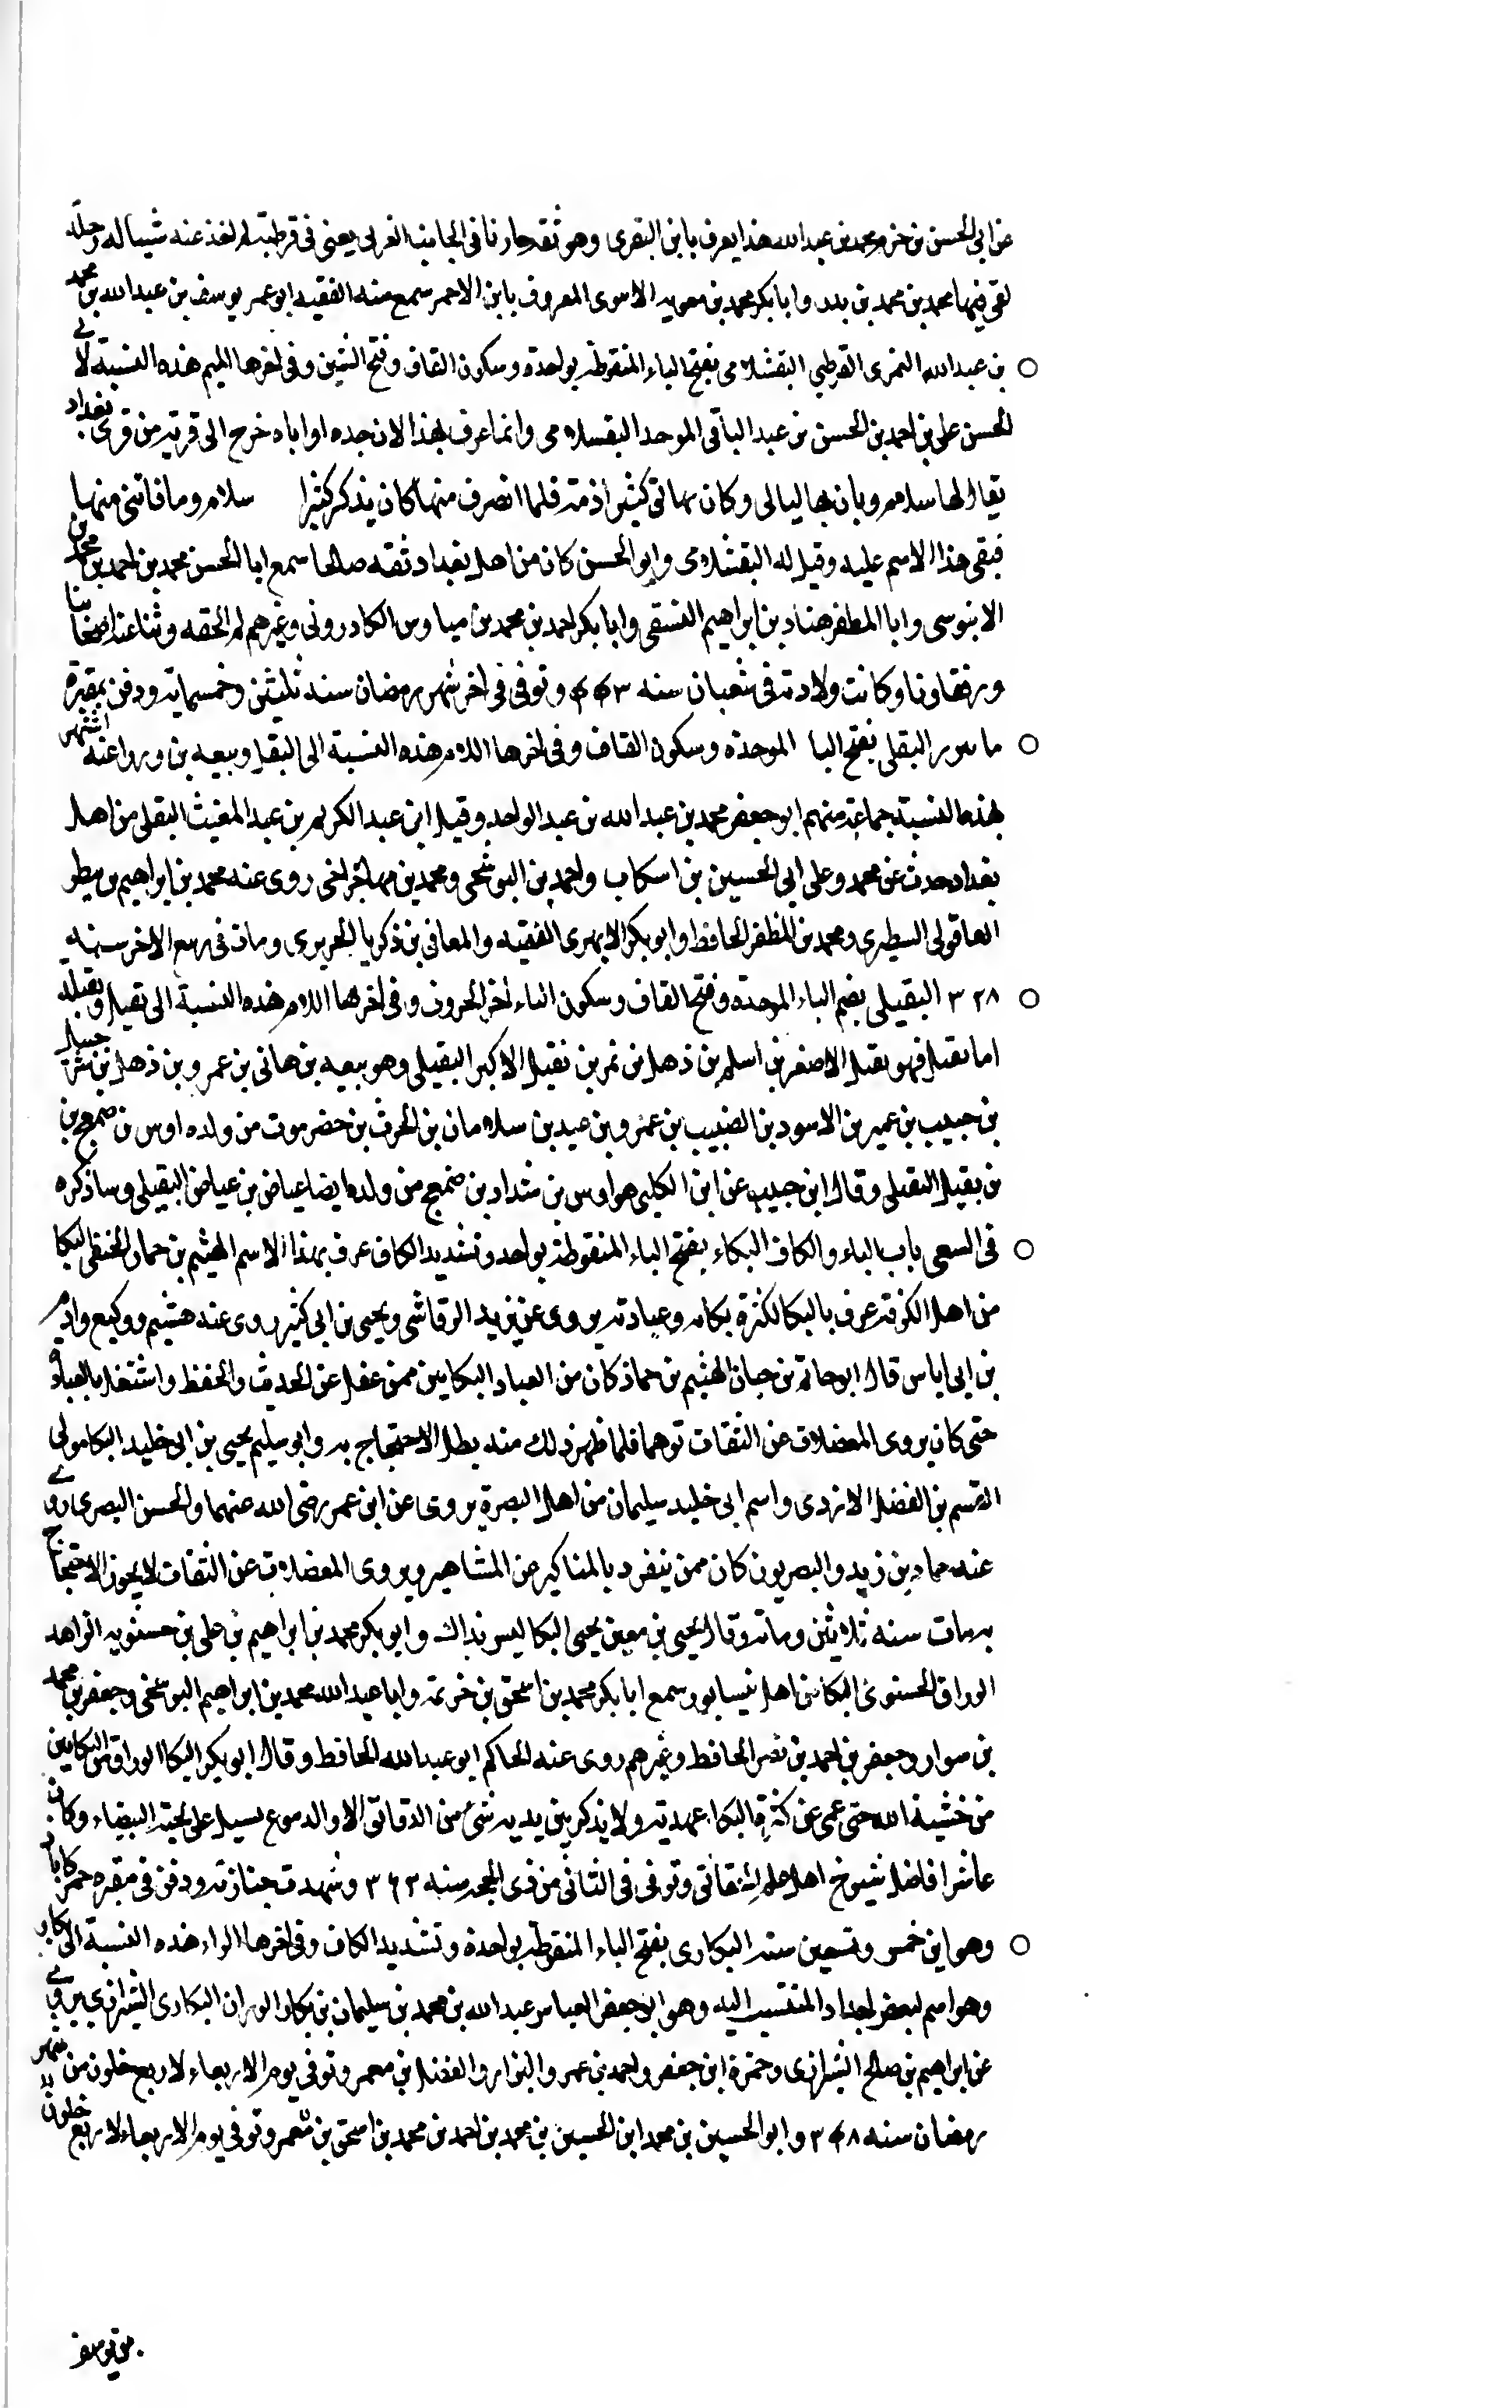 عن ابى الحسن بن حزم محمد بن عبد الله هذا يعرف بابن البقرى وهو ثقه جارنا فى الجانب الغربى يعنى فى قرطبة لم اخذ عنه شيا له رحلة
لقى فيها محمد بن محمد بن بدر وابا بكر محمد بن معويه الاموى المعروف بابن الاحمر سمع منه الفقيه ابو عمر يوسف بن عبد الله بن محمد
بن عبد الله النمرى القرطبى البقشلامى بفتح الباء المنقوطه بواحدة وسكون القاف وفتح الشين وفى اخرها الميم هذه النسبة لابى
الحسن على بن احمد بن الحسن بن عبد الباقى الموحد البقسلامى وانما عرف بهذا لان جده او اباه خرج الى قرية من قرى بغداد
يقال لها سلامه وبات بها ليالى وكان بها بق كثير اذته فلما انصرف منها كان يذكر كثيرا سلام وما فاتنى منها
فبقى هذا الاسم عليه وقيل له البقشلامى وابو الحسن كان من اهل بغداد ثقه صالحا سمع ابا الحسن محمد بن احمد بن محمد بن
الابنوسى وابا المظفر هناد بن ابراهيم النسفى وابا بكر احمد بن محمد بن سياوس الكادرونى وغيرهم لم الحقه وثنا عنه اصحابنا
ورفقاونا وكانت ولادته فى شعبان سنه ٤٤٣ وتوفى فى اخر شهر رمضان سنه ثلثين وخمسمايه ودفن بمقبرة
البقلى بفتح البا الموحدة وسكون القاف وفى اخرها اللام هذه النسبة الى البقل وبيعه اشتهر
بهذه النسبة جماعة منهم ابو جعفر محمد بن عبد الله بن عبد الواحد وقيل ابن عبد الكريم بن عبد المغيث البقلى من اهل
بغداد حدث عن محمد وعلى ابنى الحسين بن اسكاب واحمد بن البوشنجى ومحمد بن مهاجر اخى روى عنه محمد بن ابراهيم بن
العاقولى ومحمد بن المظفر الحافظ وابو بكر الابهرى الفقيه والمعافى بن ذكريا الجريرى ومات فى ربيع الاخر سنه
٣٢٨ البقيلى بضم الباء الموحدة وفتح القاف وسكون الياء اخر الحروف وفى اخرها اللام هذه النسبة الى بقيل وبقيله
اما بقيل فهو بقيل الاصغر بن اسلم بن ذهل بن نمر بن بقيل الاكبر البقيلى وهو بن هانى بن عمرو بن ذهل بن
بن حبيب بن عمير بن الاسود بن الضبيب بن عمرو بن عبد بن سلامان بن الحرث بن حضرموت من ولده اوس بن ضمعج بن
بن بقيل البقيلى وقال ابن حبيب عن ابن الكلبى هو اوس بن شداد بن ضمعج من ولده ايضا عياض بن عياض البقيلى وساذكره
فى السعى باب الباء والكاف البكاء بفتح الباء المنقوطة بواحد وتشديد الكاف عرف بهذا الاسم الهيثم بن جماز الحنفى البكا
من اهل الكوفة عرف بالبكا لكثرة بكائه وعبادته يروى عن يزيد الرقاشى ويحيى بن ابى كثير روى عنه هشيم ووكيع وادم
بن ابى اياس قال ابو حاتم بن حبان الهيثم بن حماز كان من العباد البكايين ممن غفل عن الحديث والحفظ واشتغل بالعبادة
حتى كان يروى المعضلات عن الثقات توهما فلما ظهر ذلك منه بطل الاحتجاج به وابو سليم يحيى بن ابى خليد البكا مولى
القسم بن الفضل الازدى واسم ابى خليد سليمان من اهل البصرة يروى عن ابن عمر رضى الله عنهما والحسن البصرى روى
عنه حماد بن زيد والبصريون كان ممن ينفرد بالمناكير عن المشاهير ويروى المعضلات عن الثقات لا يجوز الاحتجاج
به مات سنه ثلاثين وماية وقال يحيى بن معين يحيى البكا ليس بذاك وابو بكر محمد بن ابراهيم بن على بن حسنويه الزاهد
الوراق الحسنوى البكا من اهل نيسابور سمع ابا بكر محمد بن اسحق بن خزيمة وابا عبد الله محمد بن ابراهيم البوشنجى وجعفر بن محمد
بن سوار وجعفر بن احمد بن نصر الحافظ وغيرهم روى عنه الحاكم ابو عبد الله الحافظ وقال ابو بكر البكا الوراق من البكايين
من خشية الله حتى عمى عن كثرة البكاء عهدته ولا يذكر بين يديه شئ من الدقائق الا والدموع تسيل على لحيته البيضاء وكان
افاضل شيوخ اهل وتوفى فى الثانى من ذى الحجه سنه ٣٦٣ وشهدت جنازته ودفن فى مقبره
وهو ابن خمس وتسعين سنه البكارى بفتح الباء المنقوطة بواحدة وتشديد الكاف وفى اخرها الراء هذه النسبة الى بكار
وهو اسم لبعض اجداد المنتسب اليه وهو ابو جعفر العباس عبد الله بن محمد بن سليمان بن بكار البكارى الشيرازى يروى
عن ابراهيم بن صالح الشيرازى وحمزة ابن جعفر واحمد بن عمرو البزار والفضل بن معمر وتوفى يوم الاربعاء لاربع خلون من شهر
رمضان سنه ٣٤٨ وابو الحسين بن محمد ابن الحسين بن محمد بن احمد بن محمد بن اسحق بن معمر وتوفى يوم الاربعاء لاربع خلون